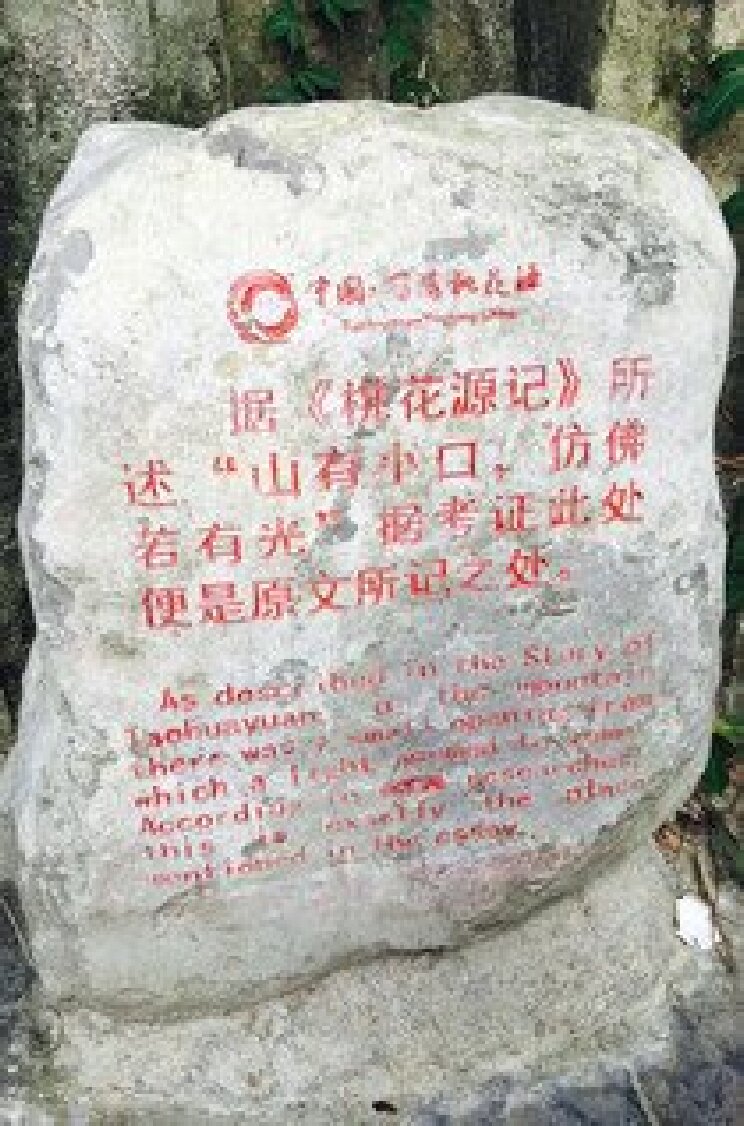 中国·酉阳桃花源
据《桃花源记》所
述“山有小口，仿佛
若有光”据考证此处
便是原文所记之处。
As described in the Story of
Taohuayuan, in the mountain
there was a small opening from
which a light seemed to
According to researches,
this is exactly the place
mentioned in the essay.